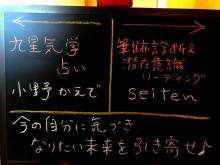 九星気学
占い
小野かえで
筆跡診断&
潜在意識
リーディング
seiten
今の自分に気づき
なりたい未来を引き寄せ♪